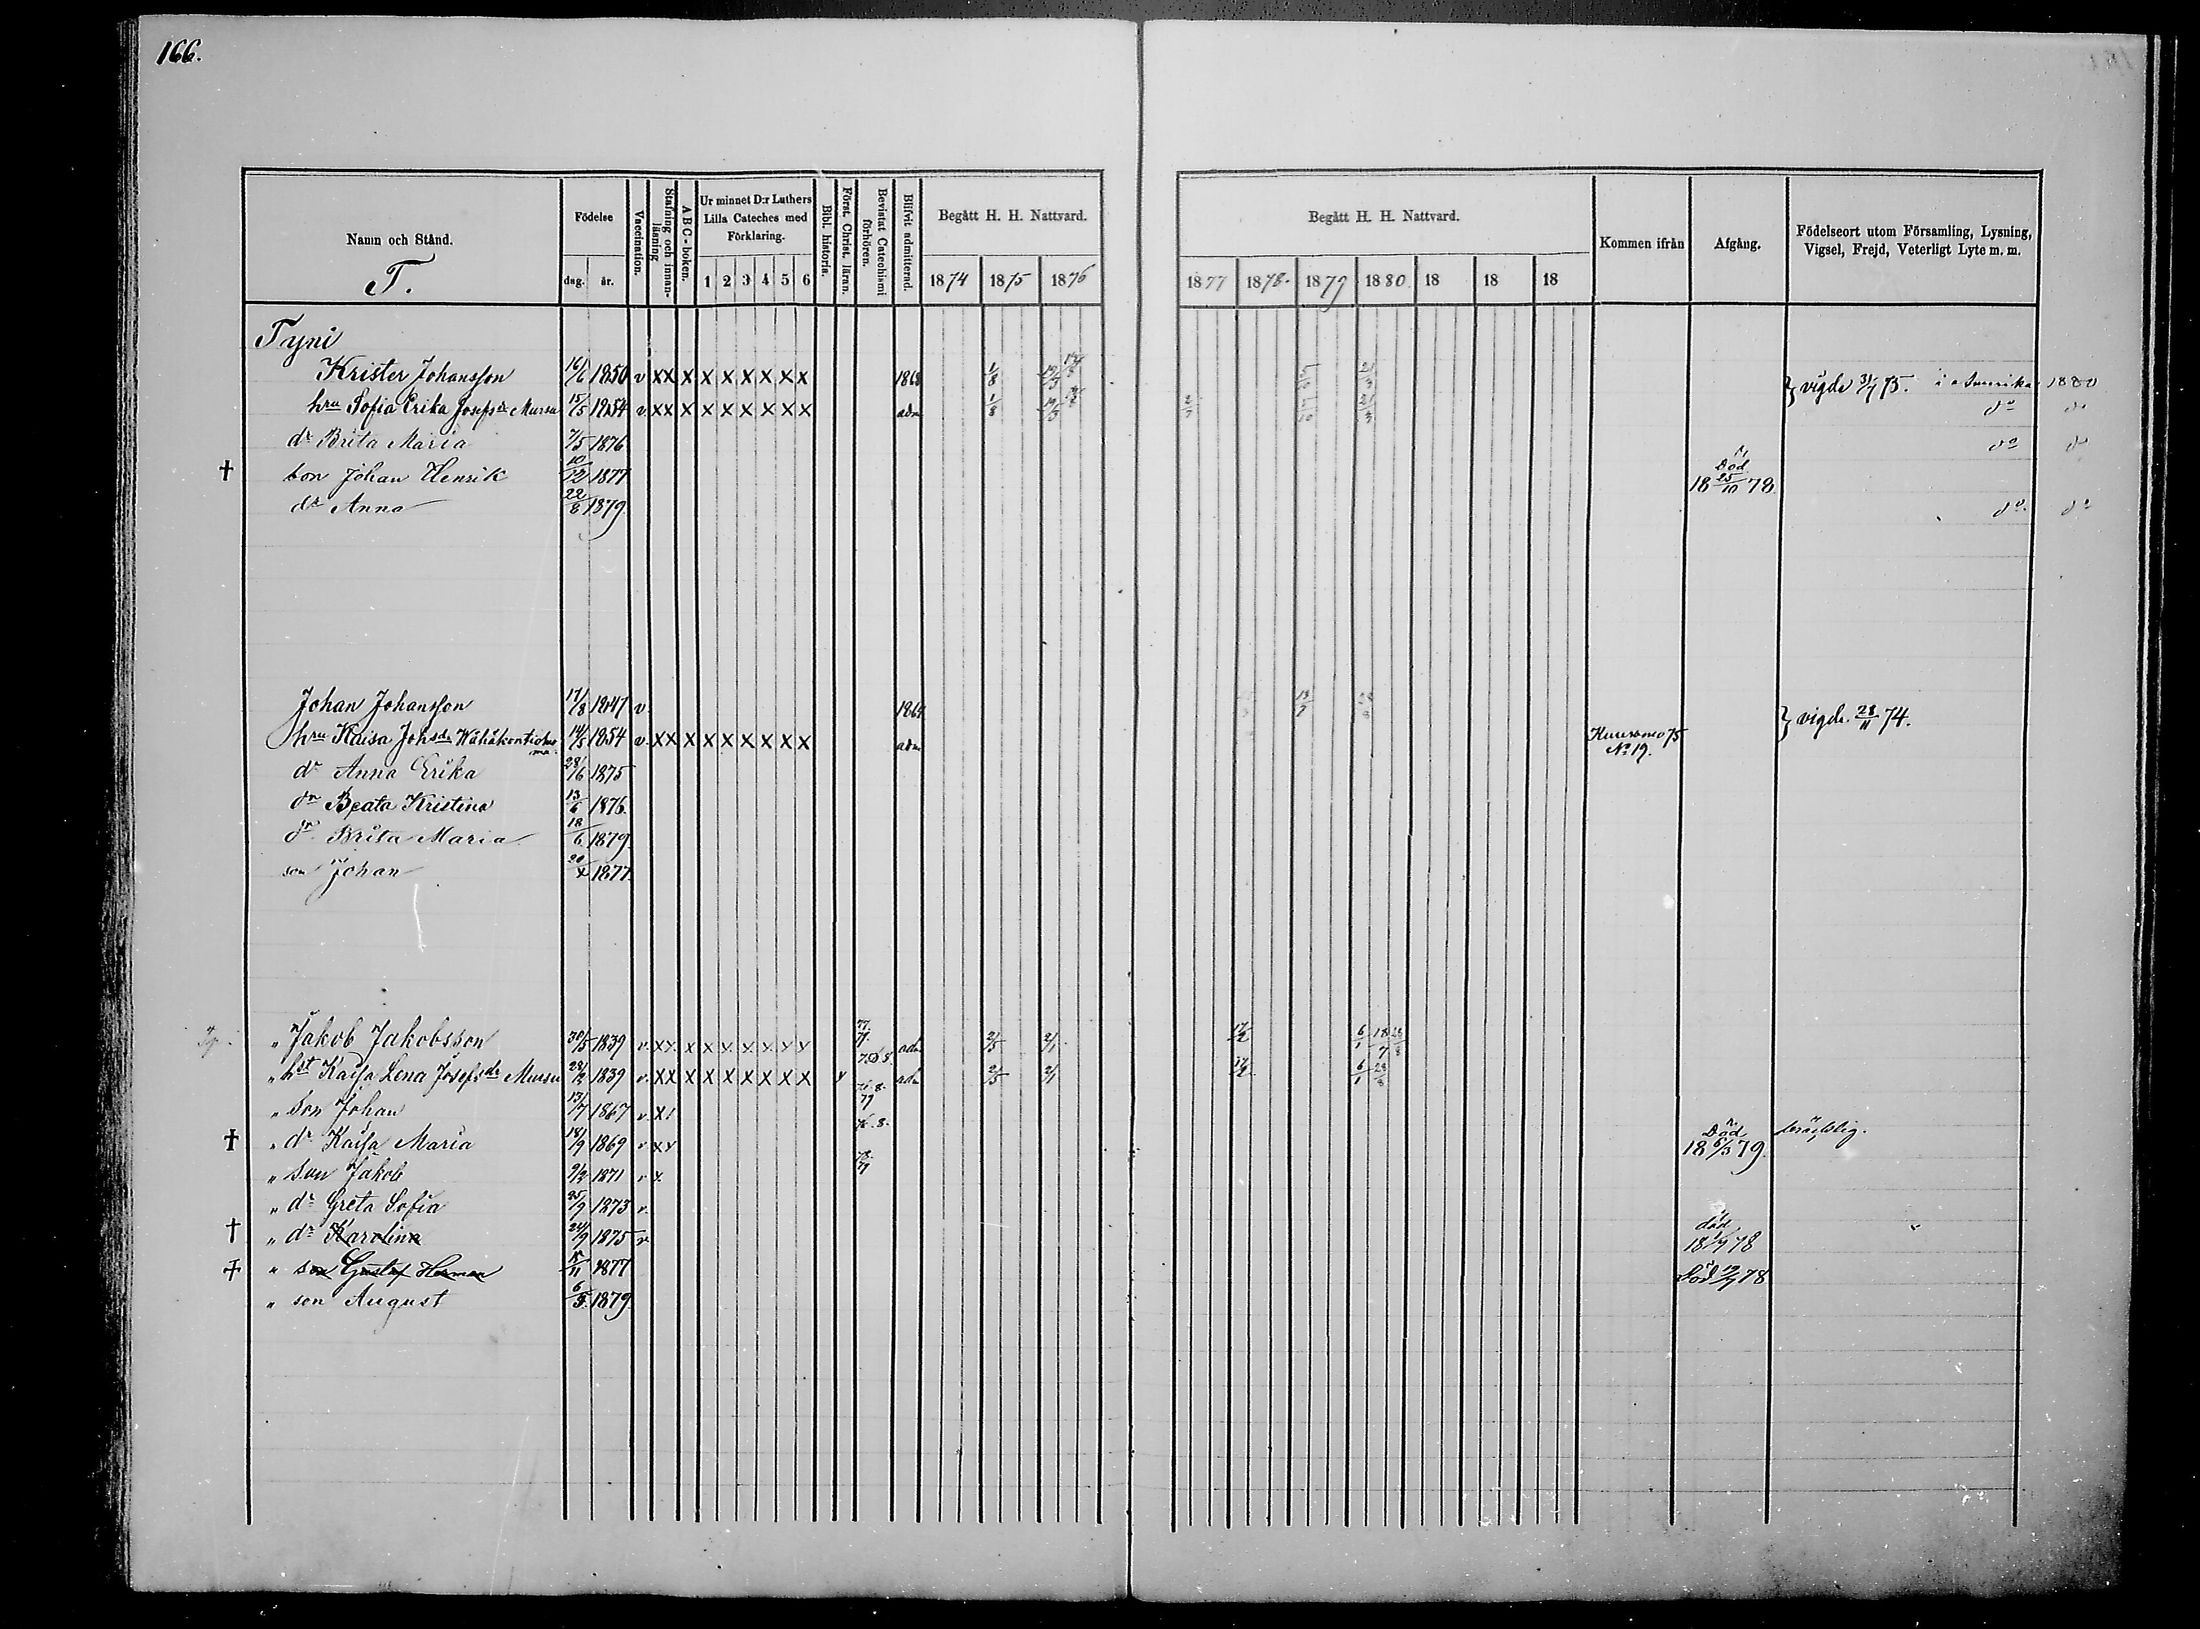 166.
Namn och Stånd.
T.
Födelse
dag. år.
Vaccination.
Stafning och innanläsning
A B C-boken.
Ur minnet D:r Luthers Lilla Cateches med Förklaring.
1 2 3 4 5 6
Bibl. historia.
Först. Christ. läran.
Bevistat Catechismi förhören.
Blifvit admitterad.
Begått H. H. Nattvard.
1874 1875 1876
Begått H. H. Nattvard.
1877 1878 1879 1880 18 18 18
Kommen ifrån
Afgång.
Födelseort utom Församling, Lysning, Vigsel, Frejd, Veterligt Lyte m. m.
Tyni
Krister Johansson 16/6 1850 v XX X X X X X X X 1868 1/8 } vigde 31/7 75. i Amerika 1880
hru Sofia Erika Josefsdr Mursu 15/5 1854 v XX X X X X X X X adm 1/8 do do
dr Brita Maria 7/5 1876 do do
† son Johan Henrik 10/12 1877 Död 18 25/10 78
dr Anna 22/8 1879 do do
Johan Johansson 17/8 1847 v. 1864 } vigde 28/11 74.
hru Kaisa Johsdr 14/5 1854 v. XX X X X X X X X adm Kuusamo 75 No 19.
dr Anna Erika 28/6 1875
dr Beata Kristina 13/6 1876
dr Brita Maria 18/6 1879
son Johan 20/4 1877
" Jakob Jakobsson 30/5 1839 v. XX. X X X X X X X 77. 79. adm 2/5 2/1 17/2 6/1 18/7
" hst Kajsa Lena Josefsdr Mursu 28/2 1839 v. XX X X X X X X X adm 2/5 2/1 17/2 6/1 28/8
" Son Johan 13/7 1867 v. X
† " dr Kajsa Maria 18/9 1869 v. XX 76. 8. Död 18 6/3 79.
" Son Jakob 9/2 1871 v X
" dr Greta Sofia 25/9 1873 v.
† " dr Karolina 24/9 1875 v död 18 78
† " son Gustaf Herman 1877 Död 78
" son August 6/3 1879